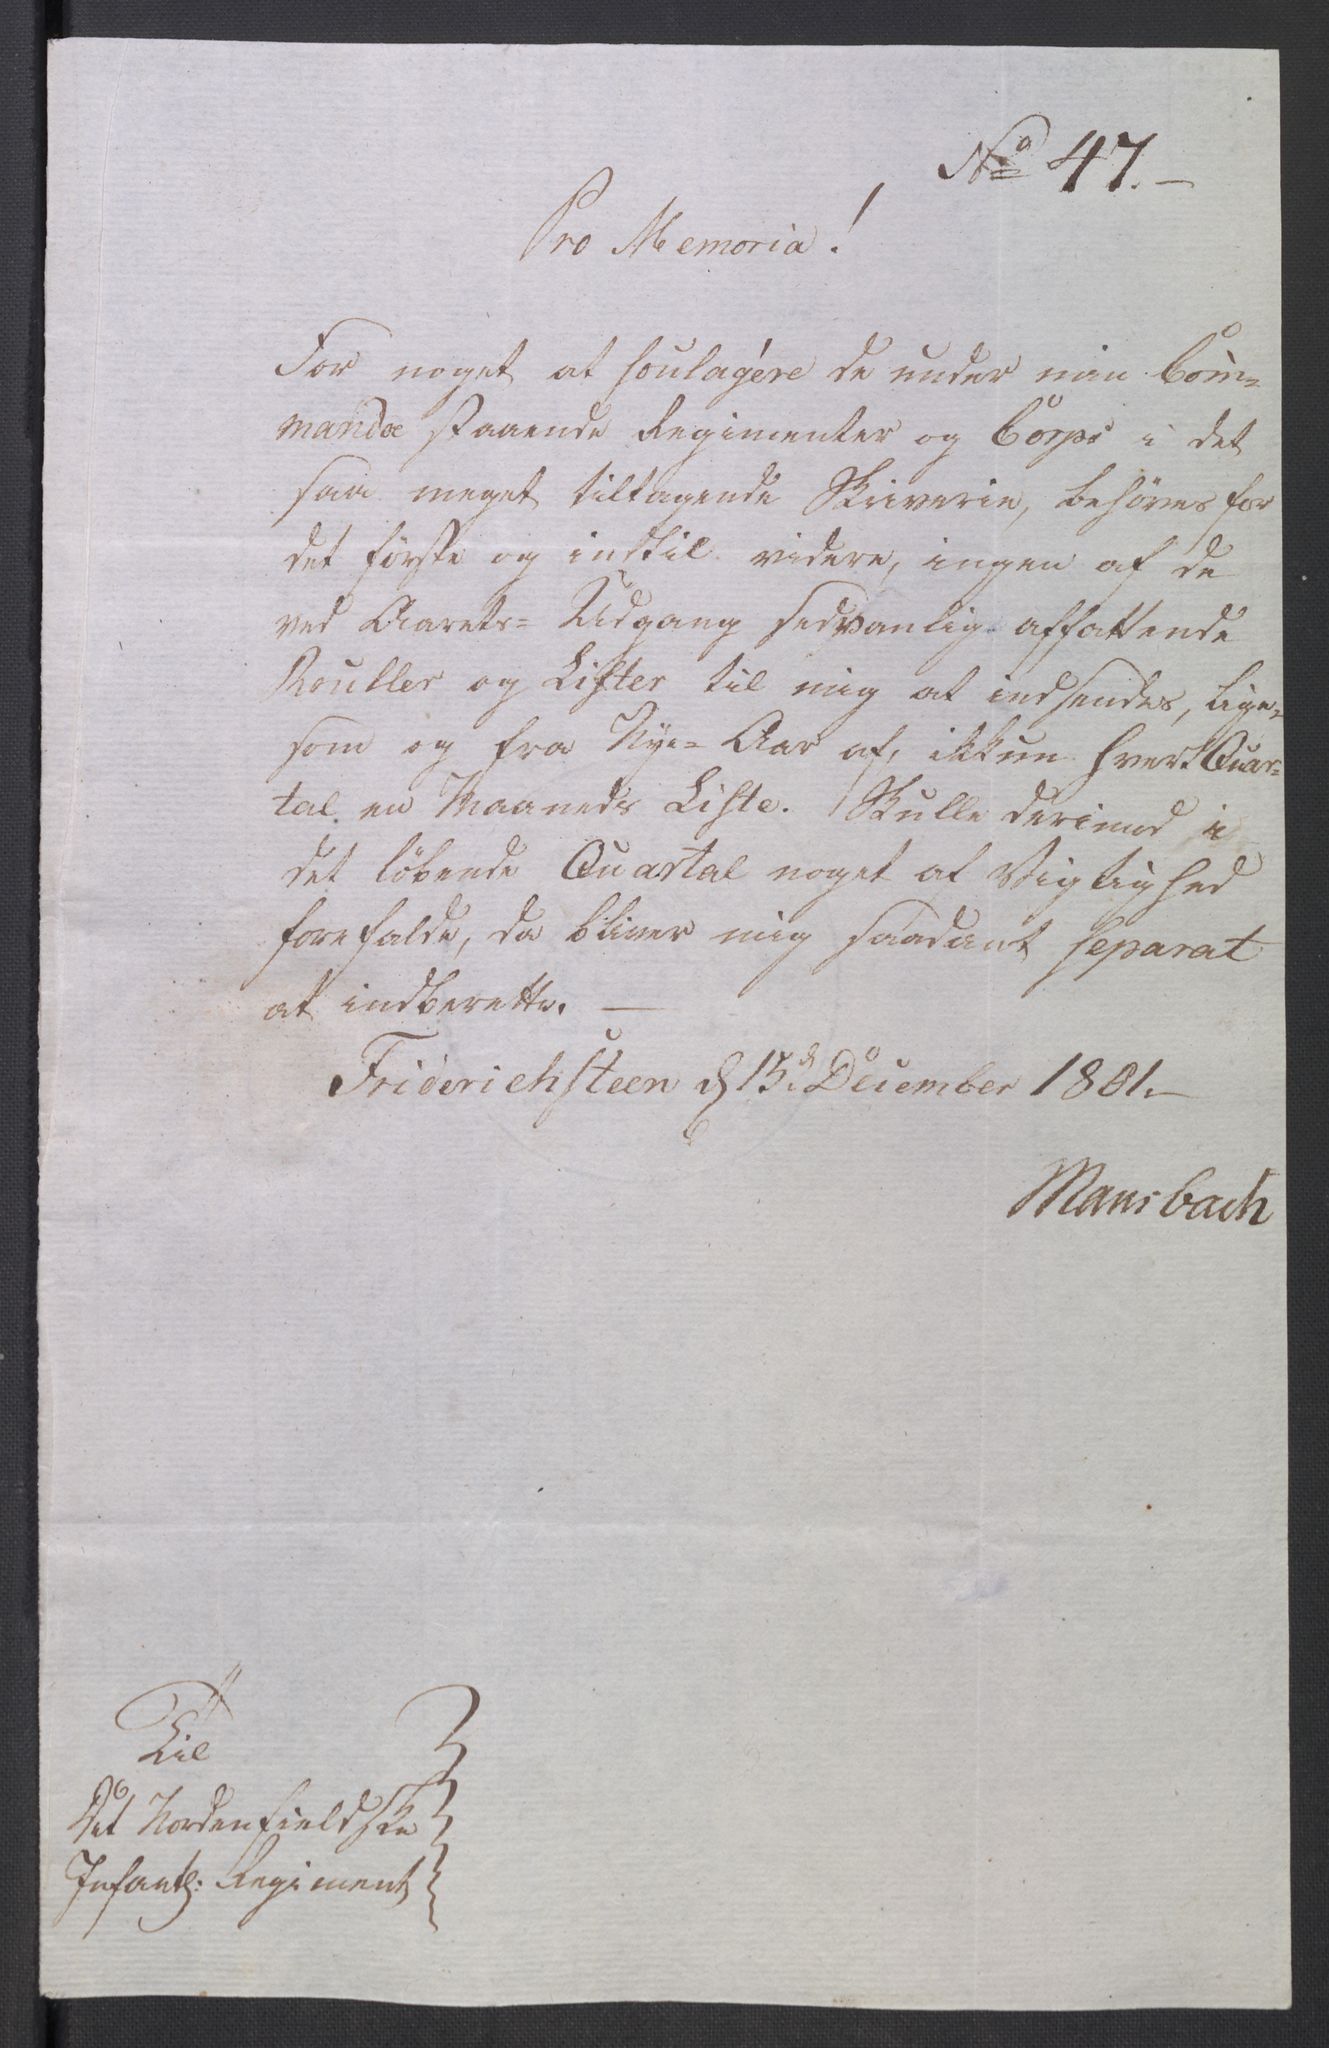 No 47.-
Pro Memoria!
For noget at soulagére de under min Com-
mando staaende Regimenter og Corps i det
saa meget tiltagende Skriverie, behöves for
det förste og indtil videre, ingen af de
ved Aarets- Udgang sedvanlig affattende
Rouller og Lister til mig at indsendes, lige-
som og fra Nye- Aar af, ikkun hvert Quar-
tal en Maaneds Liste. Skulle derimod i
det löbende Quartal noget af Vigtighed
forefalde, da bliver mig saadant separat
at indberette. —
Friderichsteen d 15d December 1801.-
Mansbach
Til
Det Nordenfieldske
Infant: Regiment